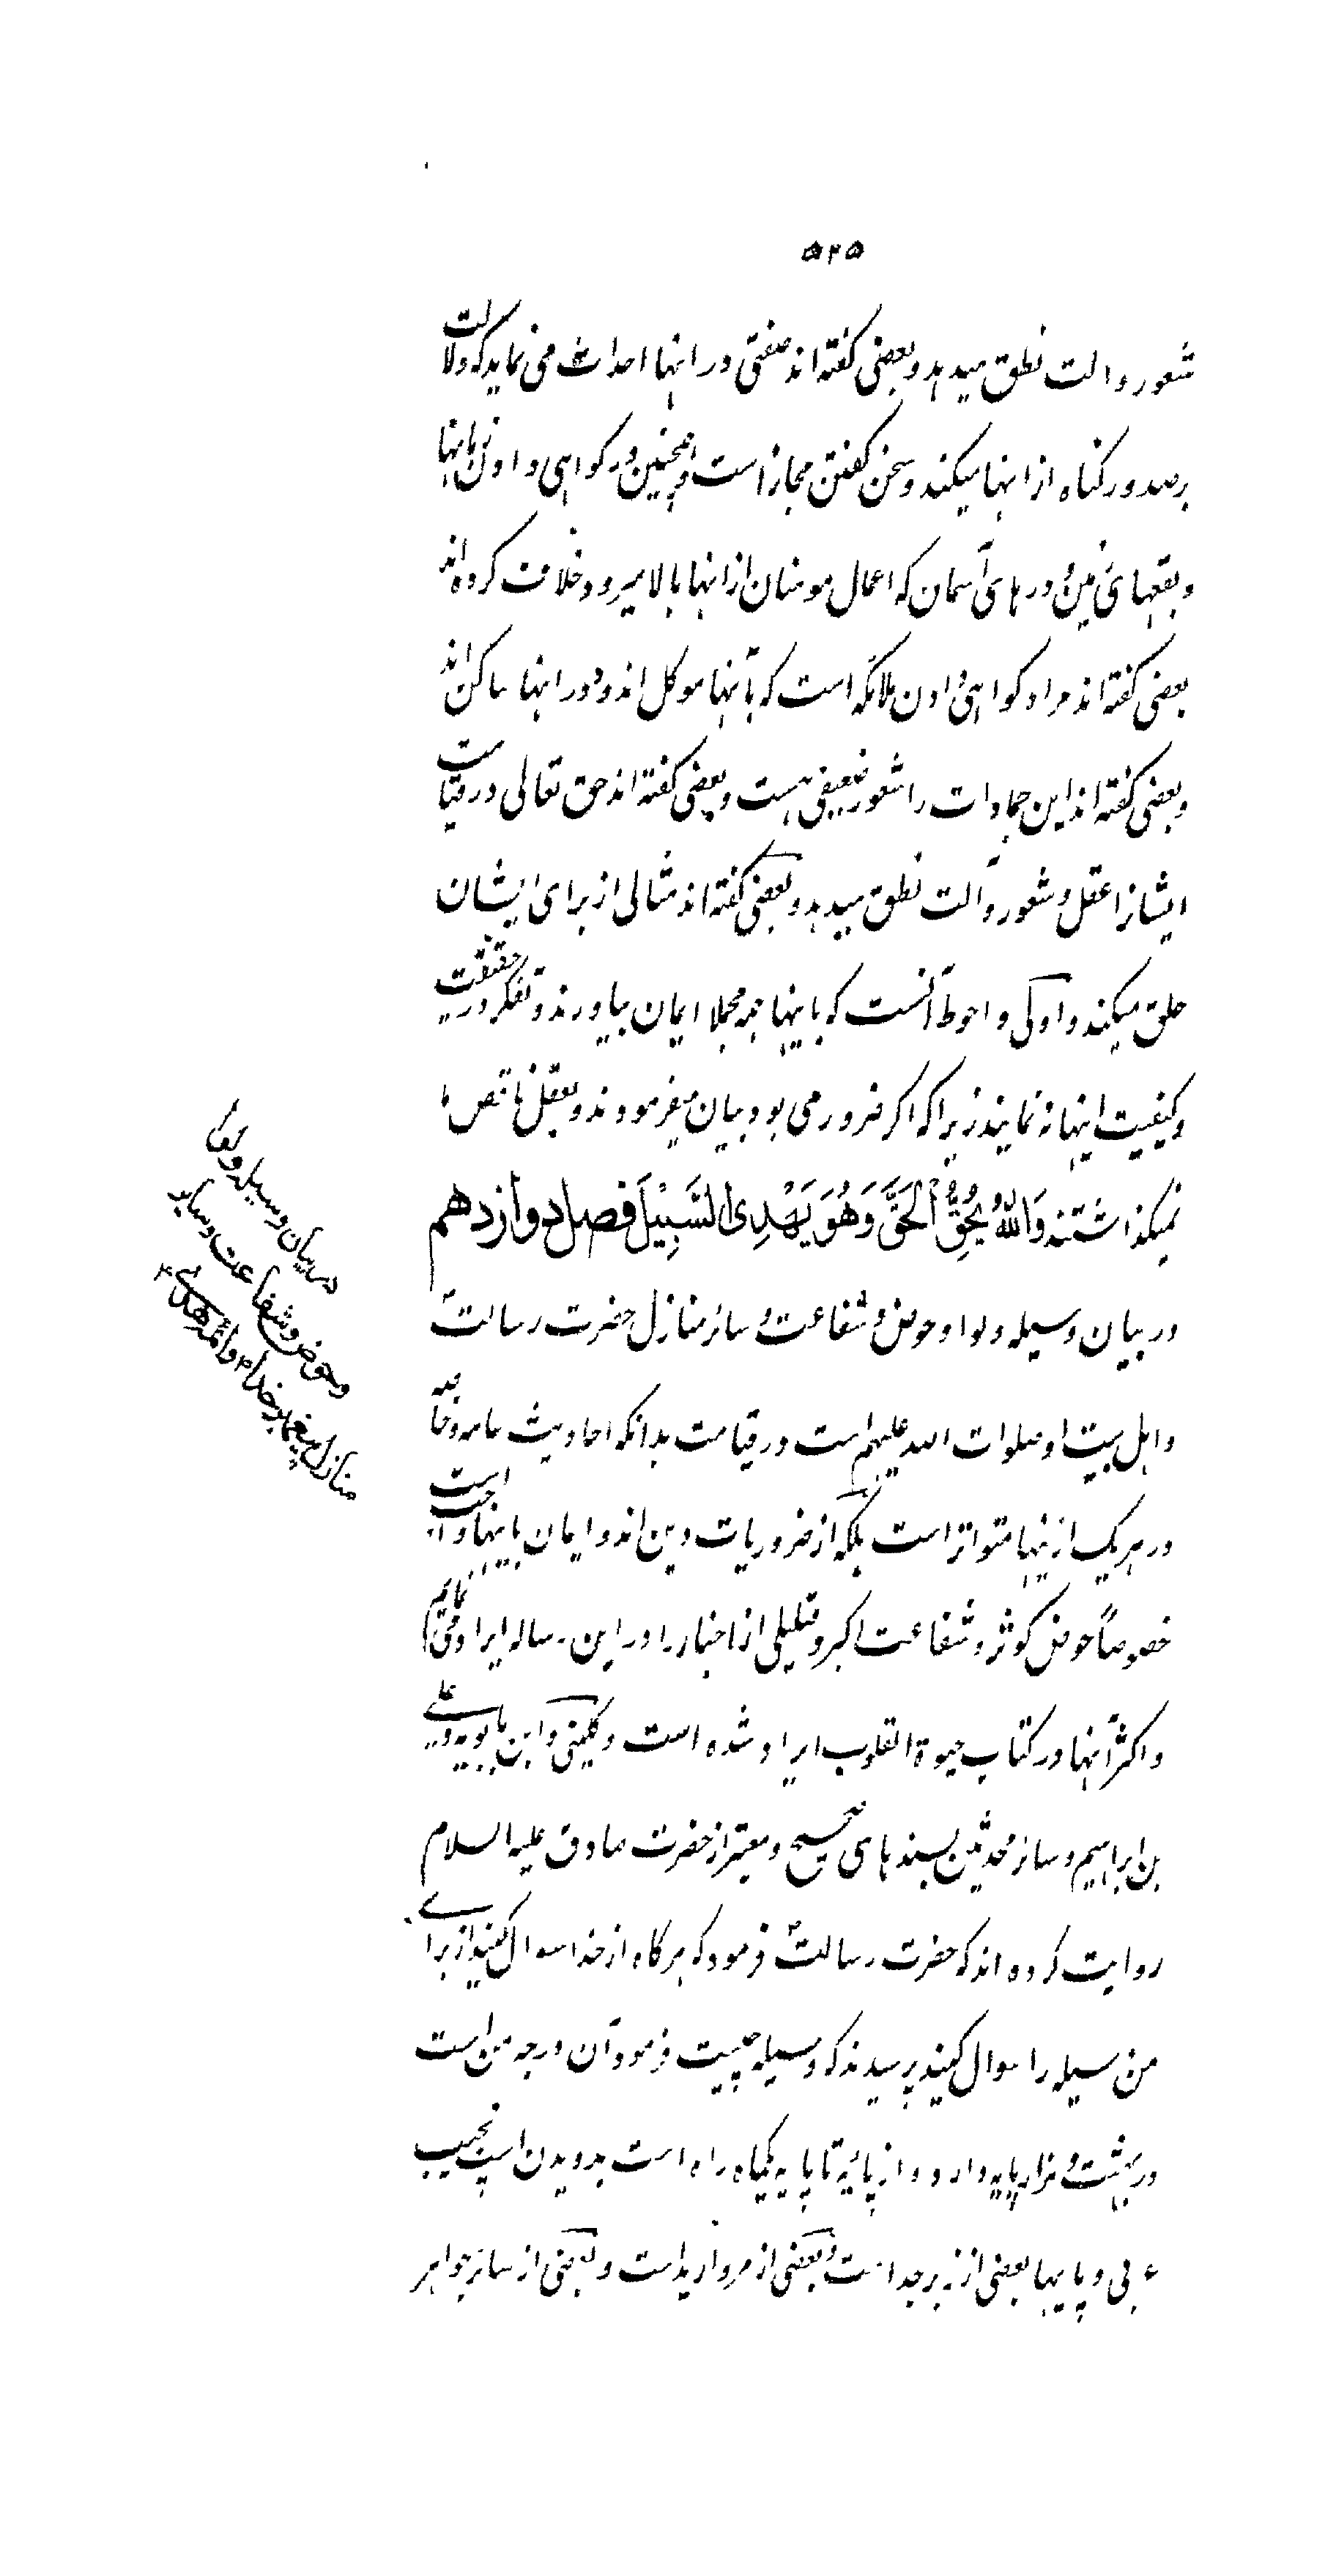 ۵۲۵
شعور و الت نطق میدهد و بعضی گفته اند صفتی در اینها احداث می نماید که دلالت
بر صدور گناه از اینها میکند و سخن گفتن مجاز است و همچنین در کواهی دادن زمانها
و بقعهای زمین و درهای آسمان که اعمال مومنان از انها بالا میرود خلاف کرده اند
بعضی گفته اند مراد کواهی دادن ملائکه است که بآنها موکل اند و در انها ساکن اند
و بعضی گفته اند این جمادات را شعور ضعیفی هست و بعضی گفته اند حق تعالی در قیامت
ایشانرا عقل و شعور و آلت نطق میدهد و بعضی گفته اند مثالی از برای ایشان
خلق میکند و اولی و احوط آنست که باینها همه مجملا ایمان بیاورند و تفکر در حقیقت
و کیفیت اینها نه نمایند زیرا که اگر ضرور می بود بیان میفرمودند و بعقل ناقص ما
نمیکذاشتند وَاللّٰهُ یُحِقُّ الْحَقَّ وَهُوَ یَهْدِی السَّبِیْلَ فصل دوازدهم
در بیان وسیله و لوا و حوض و شفاعت و سائر منازل حضرت رسالتؐ
و اهل بیت او صلوات الله علیهم است در قیامت بدانکه احادیث عامه و خاصه
در هر یک از ینها متواتر است بلکه از ضروریات دین اند و ایمان باینها واجب است
خصوصاً حوض کوثر و شفاعت اکبر و قلیلی از اخبار را در این رساله ایراد می نمایم
و اکثر آنها در کتاب حیوة القلوب ایراد شده است و کلینی و ابن بابویه و علی
بن ابراهیم و سائر محدثین بسندهای صحیح و معتبر از حضرت صادق علیه السلام
روایت کرده اند که حضرت رسالتؐ فرمود که هرگاه از خدا سوال کنید از برای
من وسیله را سوال کنید پرسیدند که وسیله چیست فرمود آن درجه من است
در بهشت و هزار پایه دارد و از پایه تا پایه یکماه راه است بدویدن اسپ نجیب
عربی و پایها بعضی از زبرجد است و بعضی از مروارید است و بعضی از سائر جواهر
در بیان وسیله و لوا
و حوض و شفاعت و سایر
منازل پیغمبر خدا ص و ائمه هدی ع